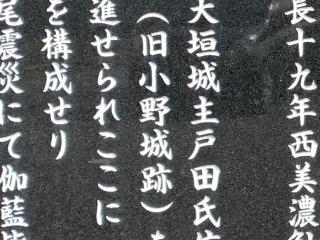 長十九年西美濃
大垣城主戸田氏
（旧小野城跡）を
進せられここに
を構成せり
尾震災にて伽藍